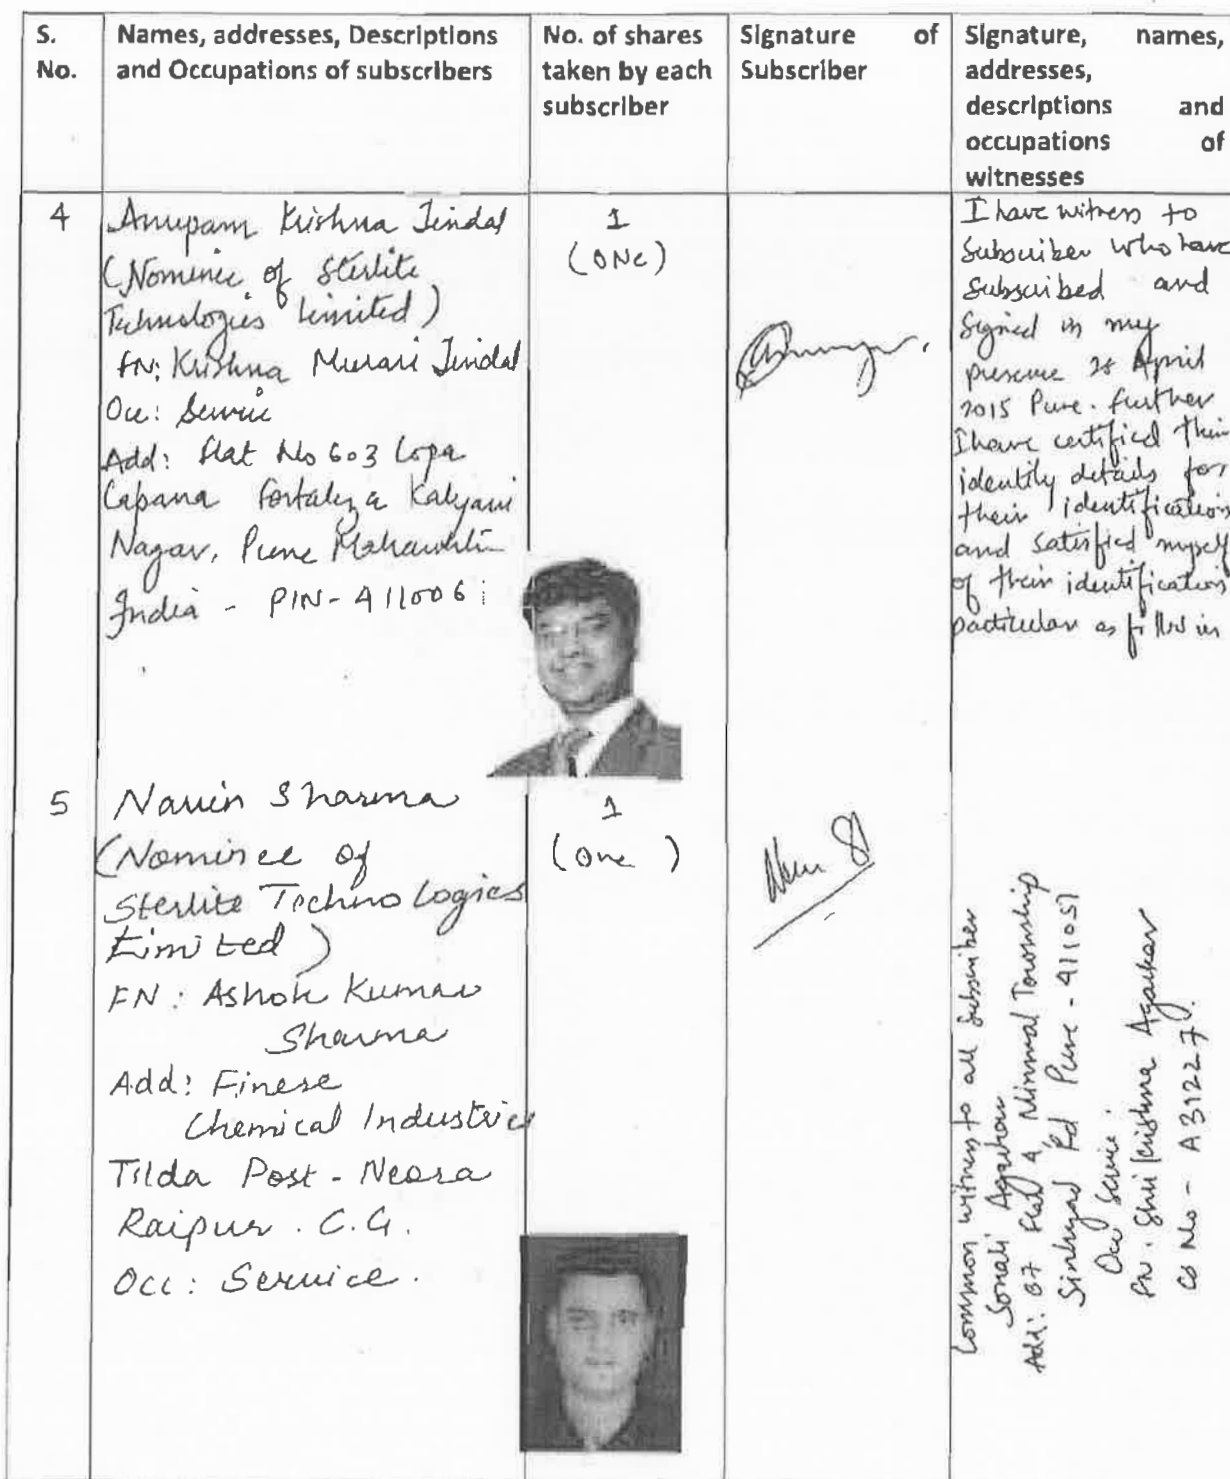 S. No.
Names, addresses, Descriptions and Occupations of subscribers
No. of shares taken by each subscriber
Signature of Subscriber
Signature, names, addresses, descriptions and occupations of witnesses
4
Anupam Krishna Jindal
(Nominee of Sterlite
Technologies Limited)
FN: Krishna Murari Jindal
Occ: Service
Add: Flat No 603 Lopa
Capana Fortaleza Kalyani
Nagar, Pune Maharashtra
India - PIN - 411006
1
(ONe)
I have witness to
Subscriber who have
Subscribed and
Signed in my
presence 28 April
2015 Pune. further
I have certified their
identity details for
their identification
and satisfied myself
of their identification
particular as filled in
5
Navin Sharma
(Nominee of
Sterlite Technologies
Limited)
FN: Ashok Kumar
Sharma
Add: Finese
Chemical Industries
Tilda Post - Neora
Raipur. C.G.
Occ: Service.
1
(One)
Common witness to all Subscriber
Sonali Agarkar
Add: 67 Flat 4, Township
Sinhgad Rd Pune - 411051
Occ Service.
FN. Shri Krishna Agarkar
CS No - A31227